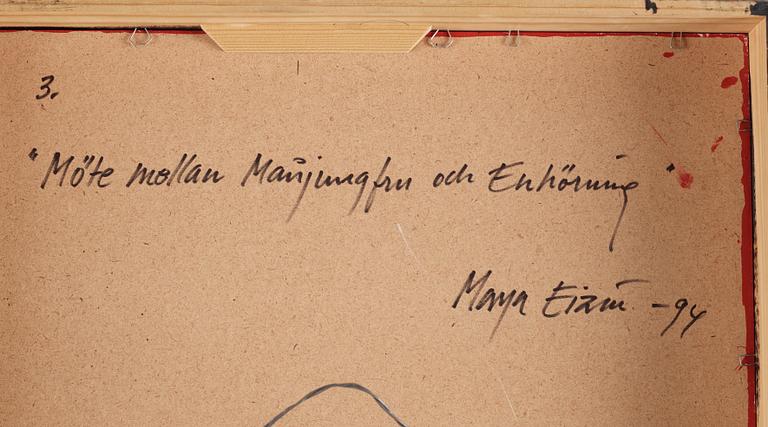 3.
"Möte mellan Manjungfru och Enhörning"
Maya Eizin -94